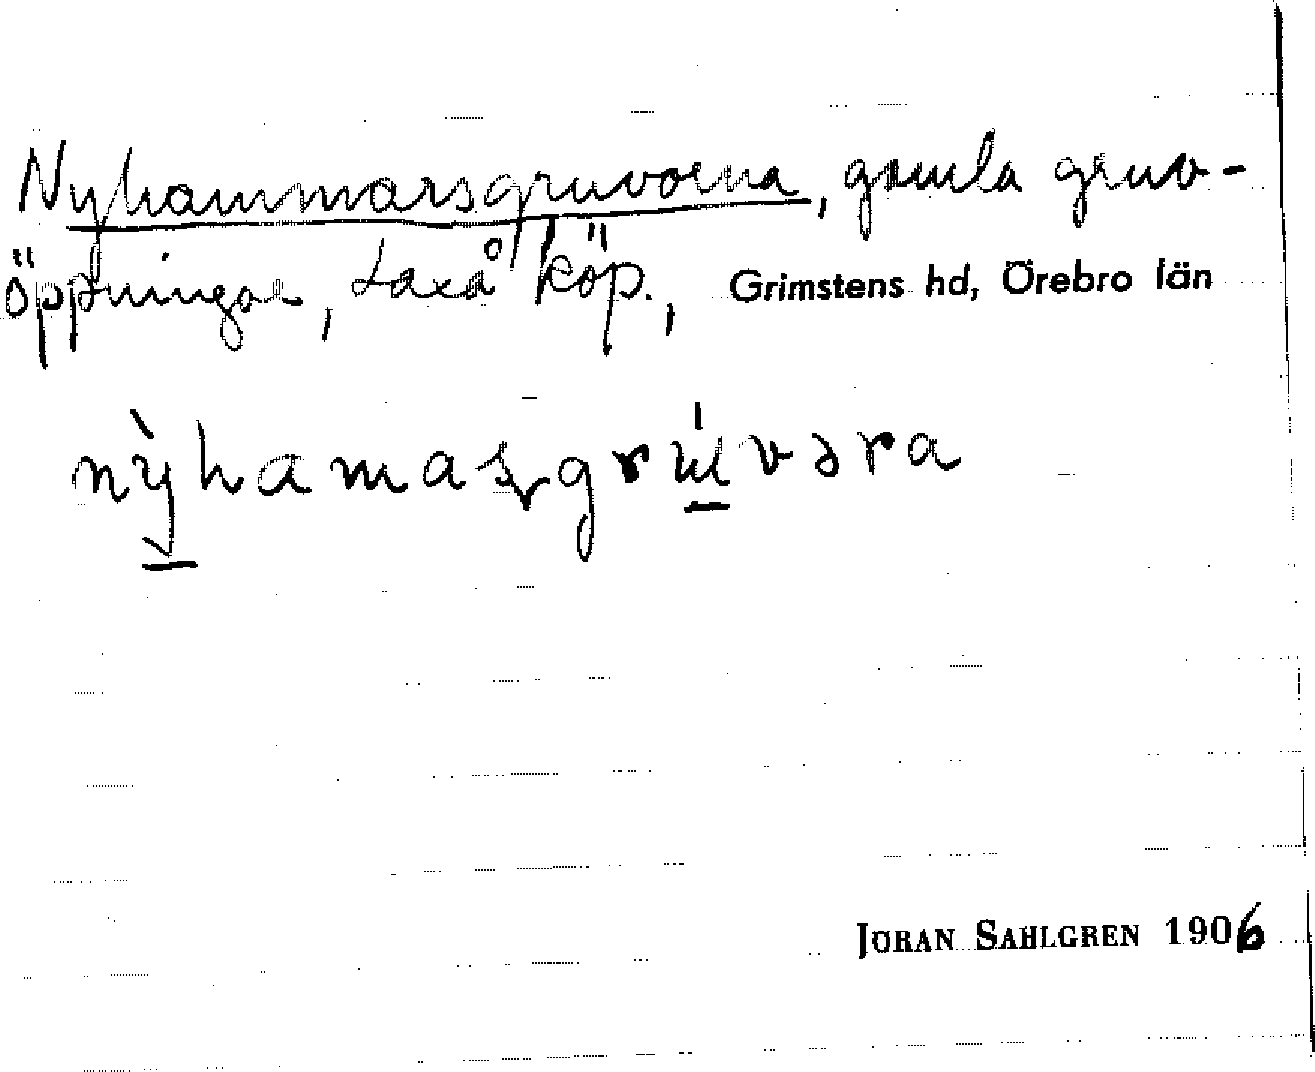 Nyhammarsgruvorna, gamla gruv-
öppningar, Laxå köp., Grimstens hd, Örebro län
nỳhamasgrúvəra
JÖRAN SAHLGREN 1906